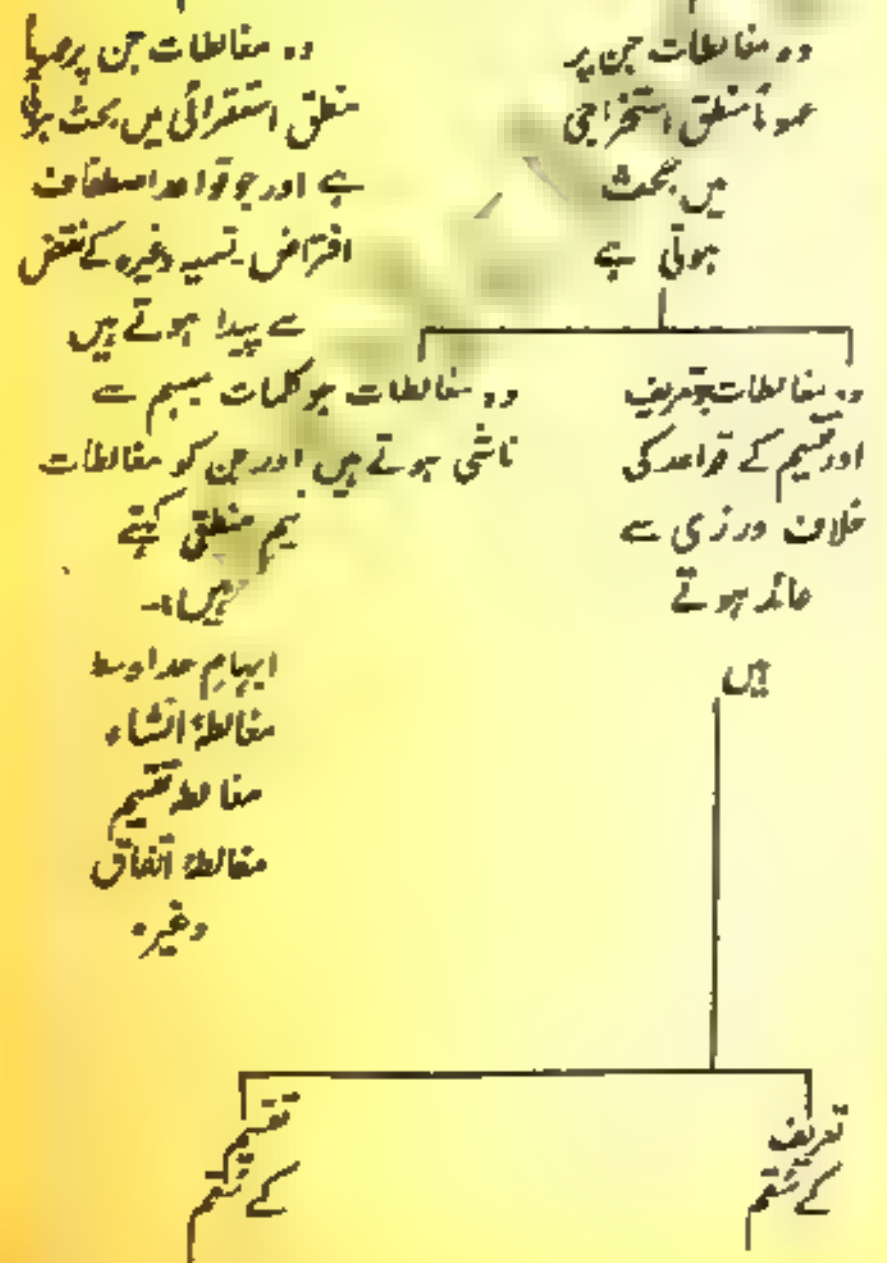 وہ مغالطات جن پر
عموماً منطق استخراجی
میں بحث
ہوتی ہے
وہ مغالطات جن پر عموماً
منطق استقرائی میں بحث ہوتی
ہے اور جو قواعد اصطفاف
افتراض۔ تسمیہ وغیرہ کے نقض
سے پیدا ہوتے ہیں
وہ مغالطات جو تعریف
اور تقسیم کے قواعد کی
خلاف ورزی سے
عائد ہوتے
ہیں
وہ مغالطات جو کلمات مبہم سے
ناشی ہوتے ہیں اور جن کو مغالطات
نیم منطقی کہتے
ہیں:۔
ابہامِ حد اوسط
مغالطۂ انشاء
مغالطہ تقسیم
مغالطۂ اتفاق
وغیرہ
تعریف
کے سقم
تقسیم
کے سقم